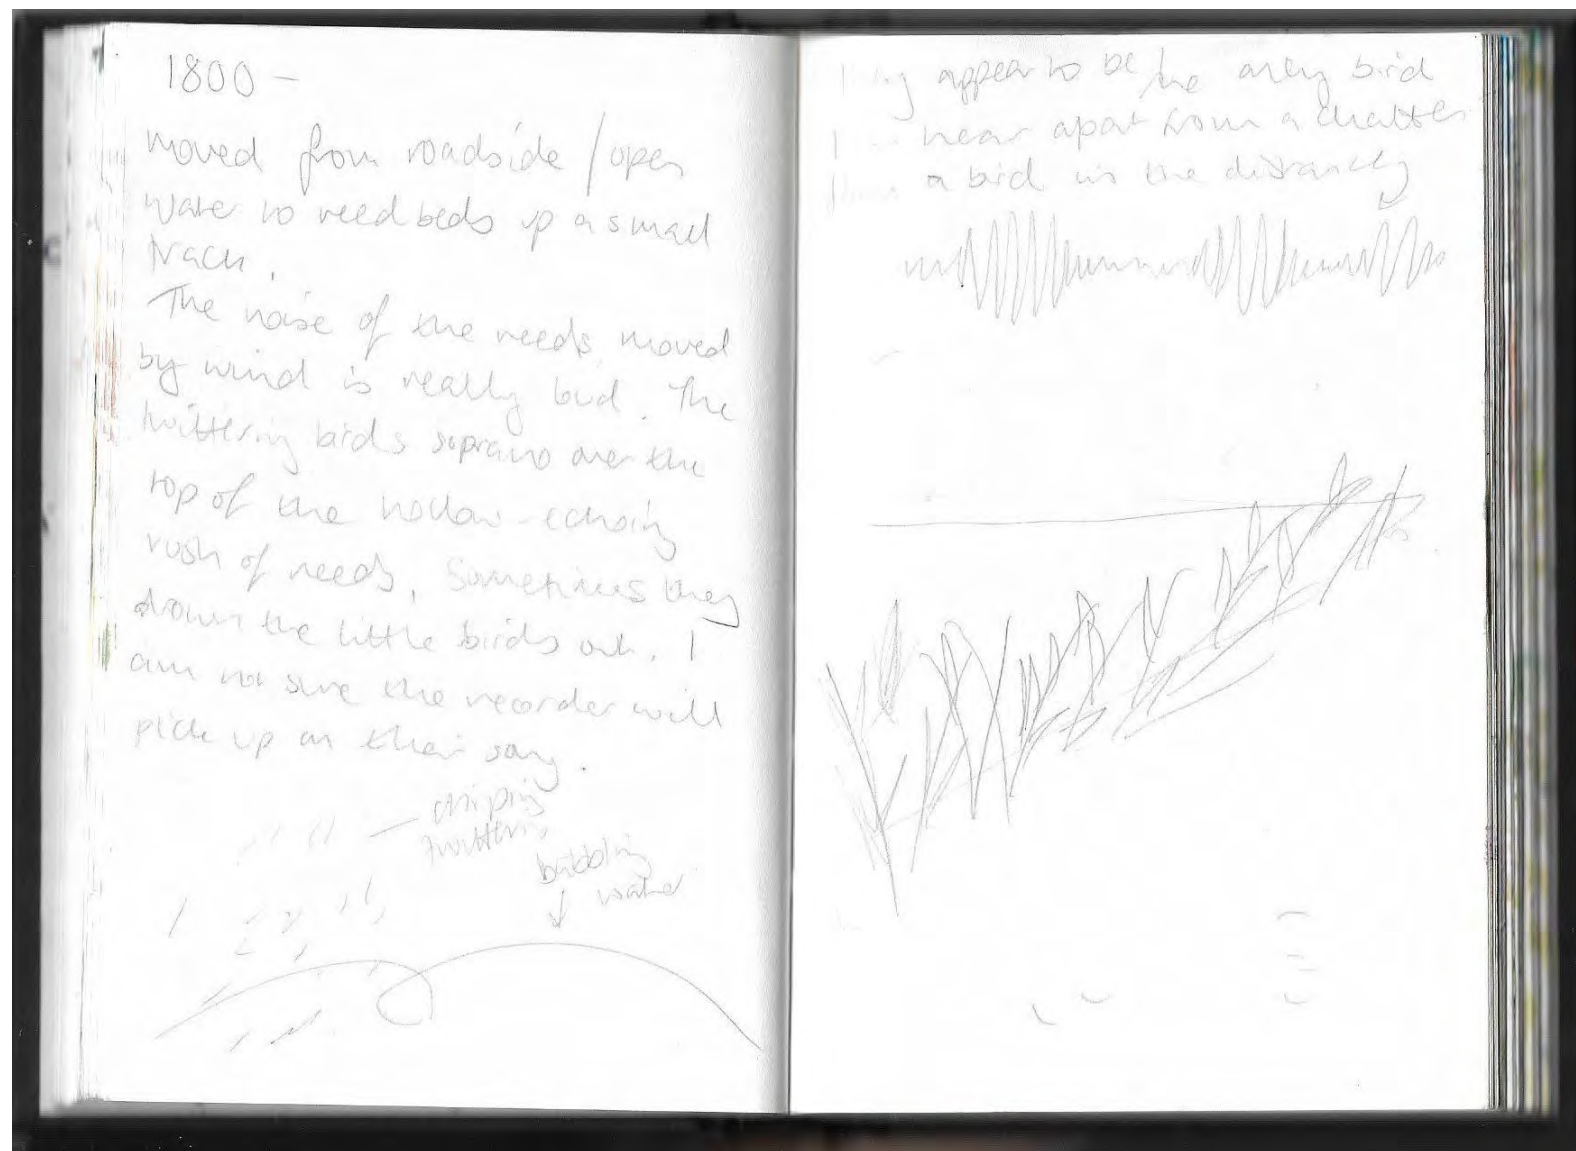 1800 –
moved from roadside / open
water to reedbeds up a small
track.
The noise of the reeds moved
by wind is really loud. The
twittering birds soprano over the
top of the hollow-echoing
rush of reeds. Sometimes they
drown the little birds out. I
am not sure the recorder will
pick up on their song.
chirping
twittering
bubbling
water
appear to be the only bird
I hear apart from a chatter
a bird in the distance